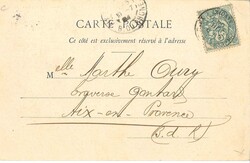 CARTE POSTALE
Ce côté est exclusivement réservé à l'adresse
Melle Marthe Oury
traverse Gontard
Aix-en-Provence
B.d.R.